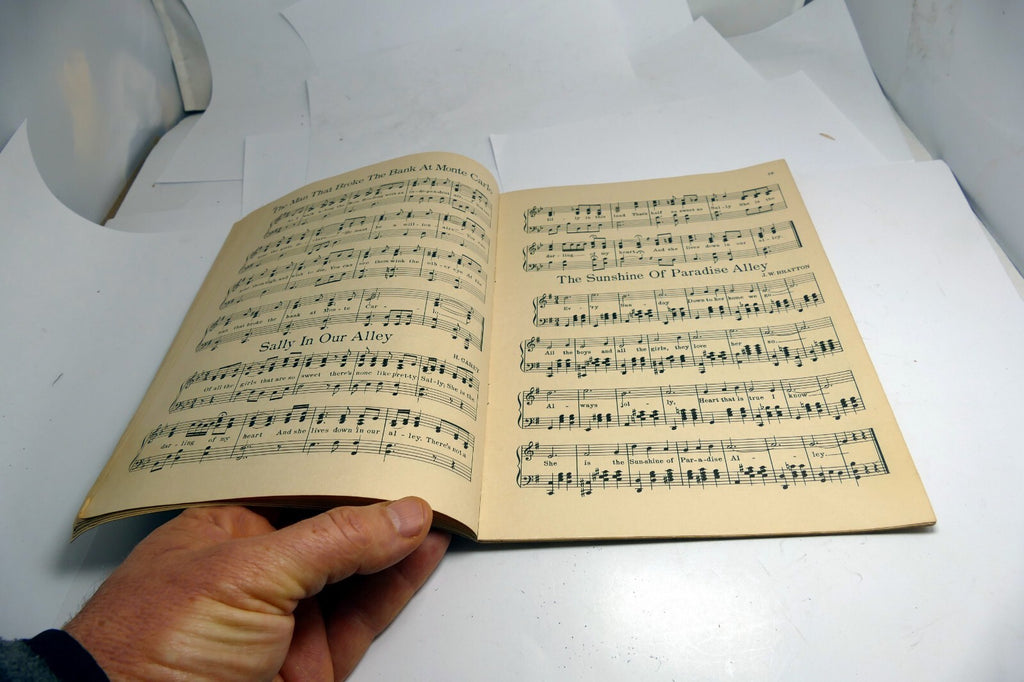 The Man That Broke The Bank At Monte Carlo
wink the oth - er eye At the
that broke the bank at Mon - te Car - lo
Sally In Our Alley
H. CAREY
Of all the girls that are so sweet there's none like pretty Sal - ly, She is the
dar - ling of my heart And she lives down in our al - ley, There's not a
ly is the
dar - ling of my heart, And she lives down in our al - ley
The Sunshine Of Paradise Alley
J. W. BRATTON
Ev - 'ry Sun - day Down to her home we go
All the boys and all the girls, they love her so
Al - ways jol - ly, Heart that is true I know
She is the Sunshine of Par - a - dise Al - ley.